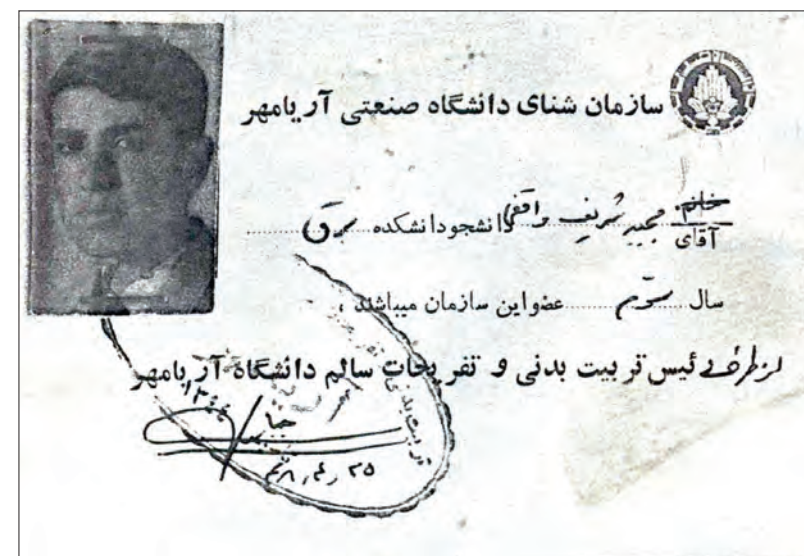 سازمان شنای دانشگاه صنعتی آریامهر
خانم
آقای مجید شریف واقفی دانشجو دانشکده برق
سال سوم عضو این سازمان میباشند.
از طرف رئیس تربیت بدنی و تفریحات سالم دانشگاه آریامهر
۱۳۴۴
تربیت بدنی و تفریحات
۲۵ ر ۴ ر ۴۸